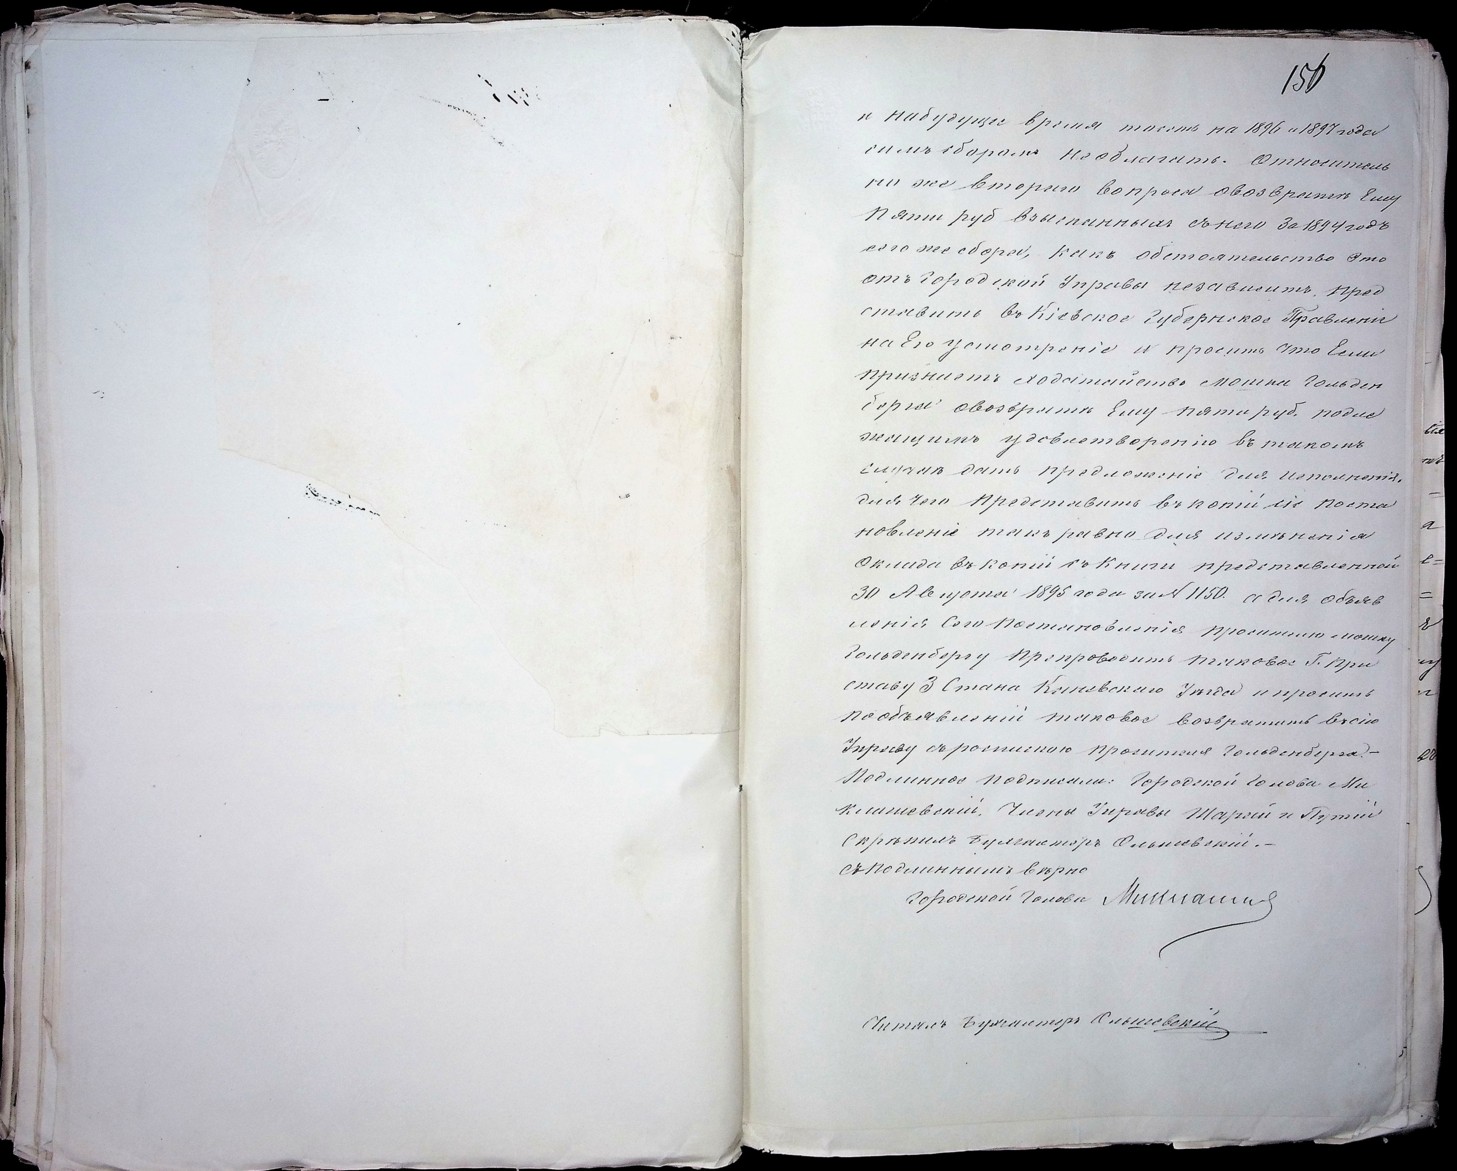 156
и набудущее время тоесть на 1896 и 1897 года
симъ сборомъ необлагать. Относитель
но же втораго вопроса овозвратѣ Ему
пяти руб взысканныхъ снего за 1894 годъ
сего же сбора, какъ обстоятельство это
отъ Городской Управы независитъ, пред
ставить въ Кіевское Губернское Правленіе
на Его усмотреніе и просить что Если
признаетъ ходатайство Мошка Гольден
берга овозвратѣ Ему пяти руб. подле
жащимъ удовлетворенію втакомъ
случаѣ дать предложеніе для исполненія,
для чего представить вкопіи сіе поста
новленіе такъ равно для измѣненія
оклада въ копіи съ Книги представленной
30 Августа 1895 года за № 1150. а для объяв
ленія Сего Постановленія просителю Мошку
Гольденбергу Препроводить таковое Г. При
ставу 3 Стана Каневскаго Уѣзда и просить
пообъявленіи таковое возвратить всію
Управу съ роспискою просителя Гольденберга.—
Подлинное подписали: Городской Голова Ми
клашевскій, Члены Управы Шарій и Путій
Скрѣпилъ Бухгалтеръ Ольшевскій.—
Съ подлиннымъ вѣрно
Городской Голова
Читалъ Бухгалтеръ Ольшевскій